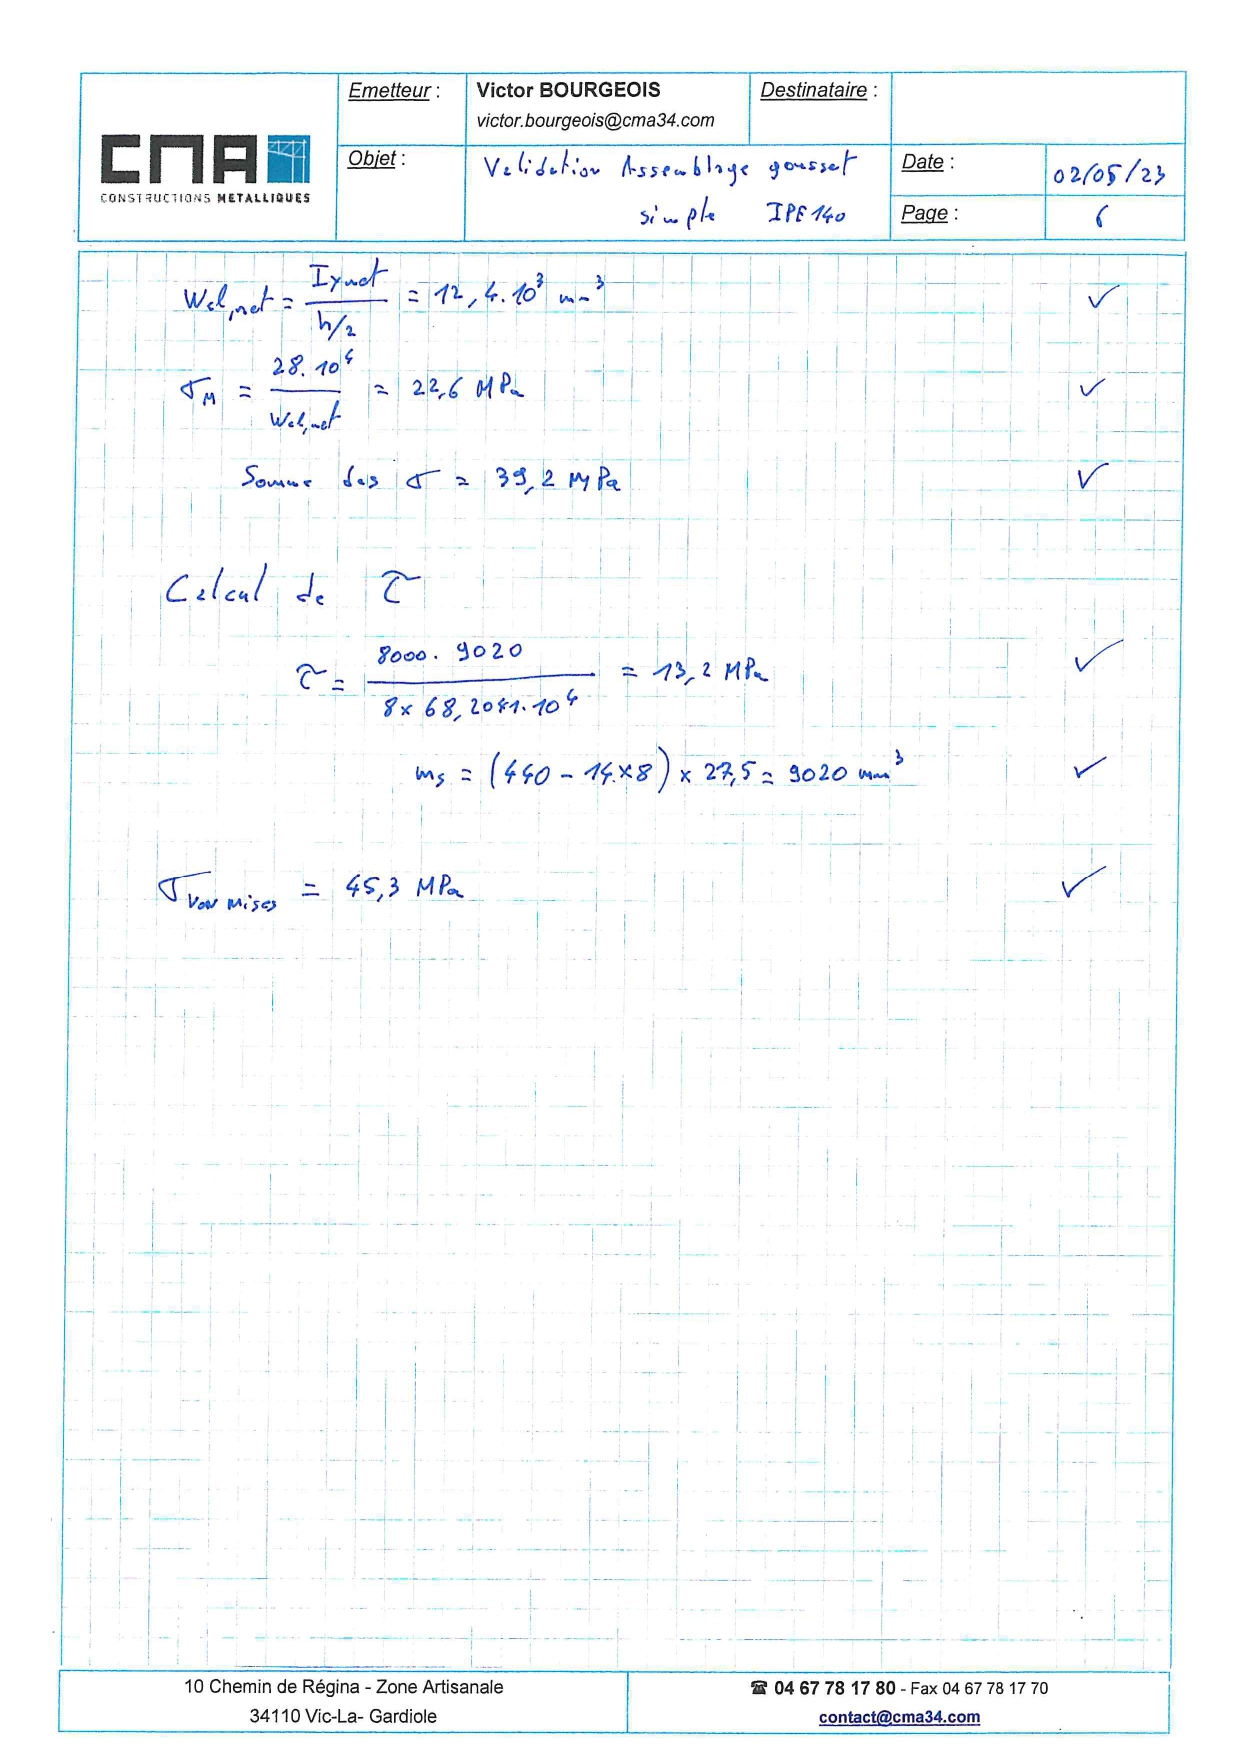 Emetteur :
Victor BOURGEOIS
victor.bourgeois@cma34.com
Destinataire :
CMA
CONSTRUCTIONS METALLIQUES
Objet :
Validation Assemblage gousset
simple IPE 140
Date :
02/05/23
Page :
6
Wel,net = Iynet / h/2 = 12,4.10³ mm³ ✓
σM = 28.10⁴ / Wel,net = 22,6 MPa ✓
Somme des σ = 39,2 MPa ✓
Calcul de τ
τ = 8000. 9020 / 8x 68,2041.10⁴ = 13,2 MPa ✓
ms = (440 - 14x8) x 27,5 = 9020 mm³ ✓
σVon Mises = 45,3 MPa ✓
10 Chemin de Régina - Zone Artisanale
34110 Vic-La- Gardiole
☎ 04 67 78 17 80 - Fax 04 67 78 17 70
contact@cma34.com